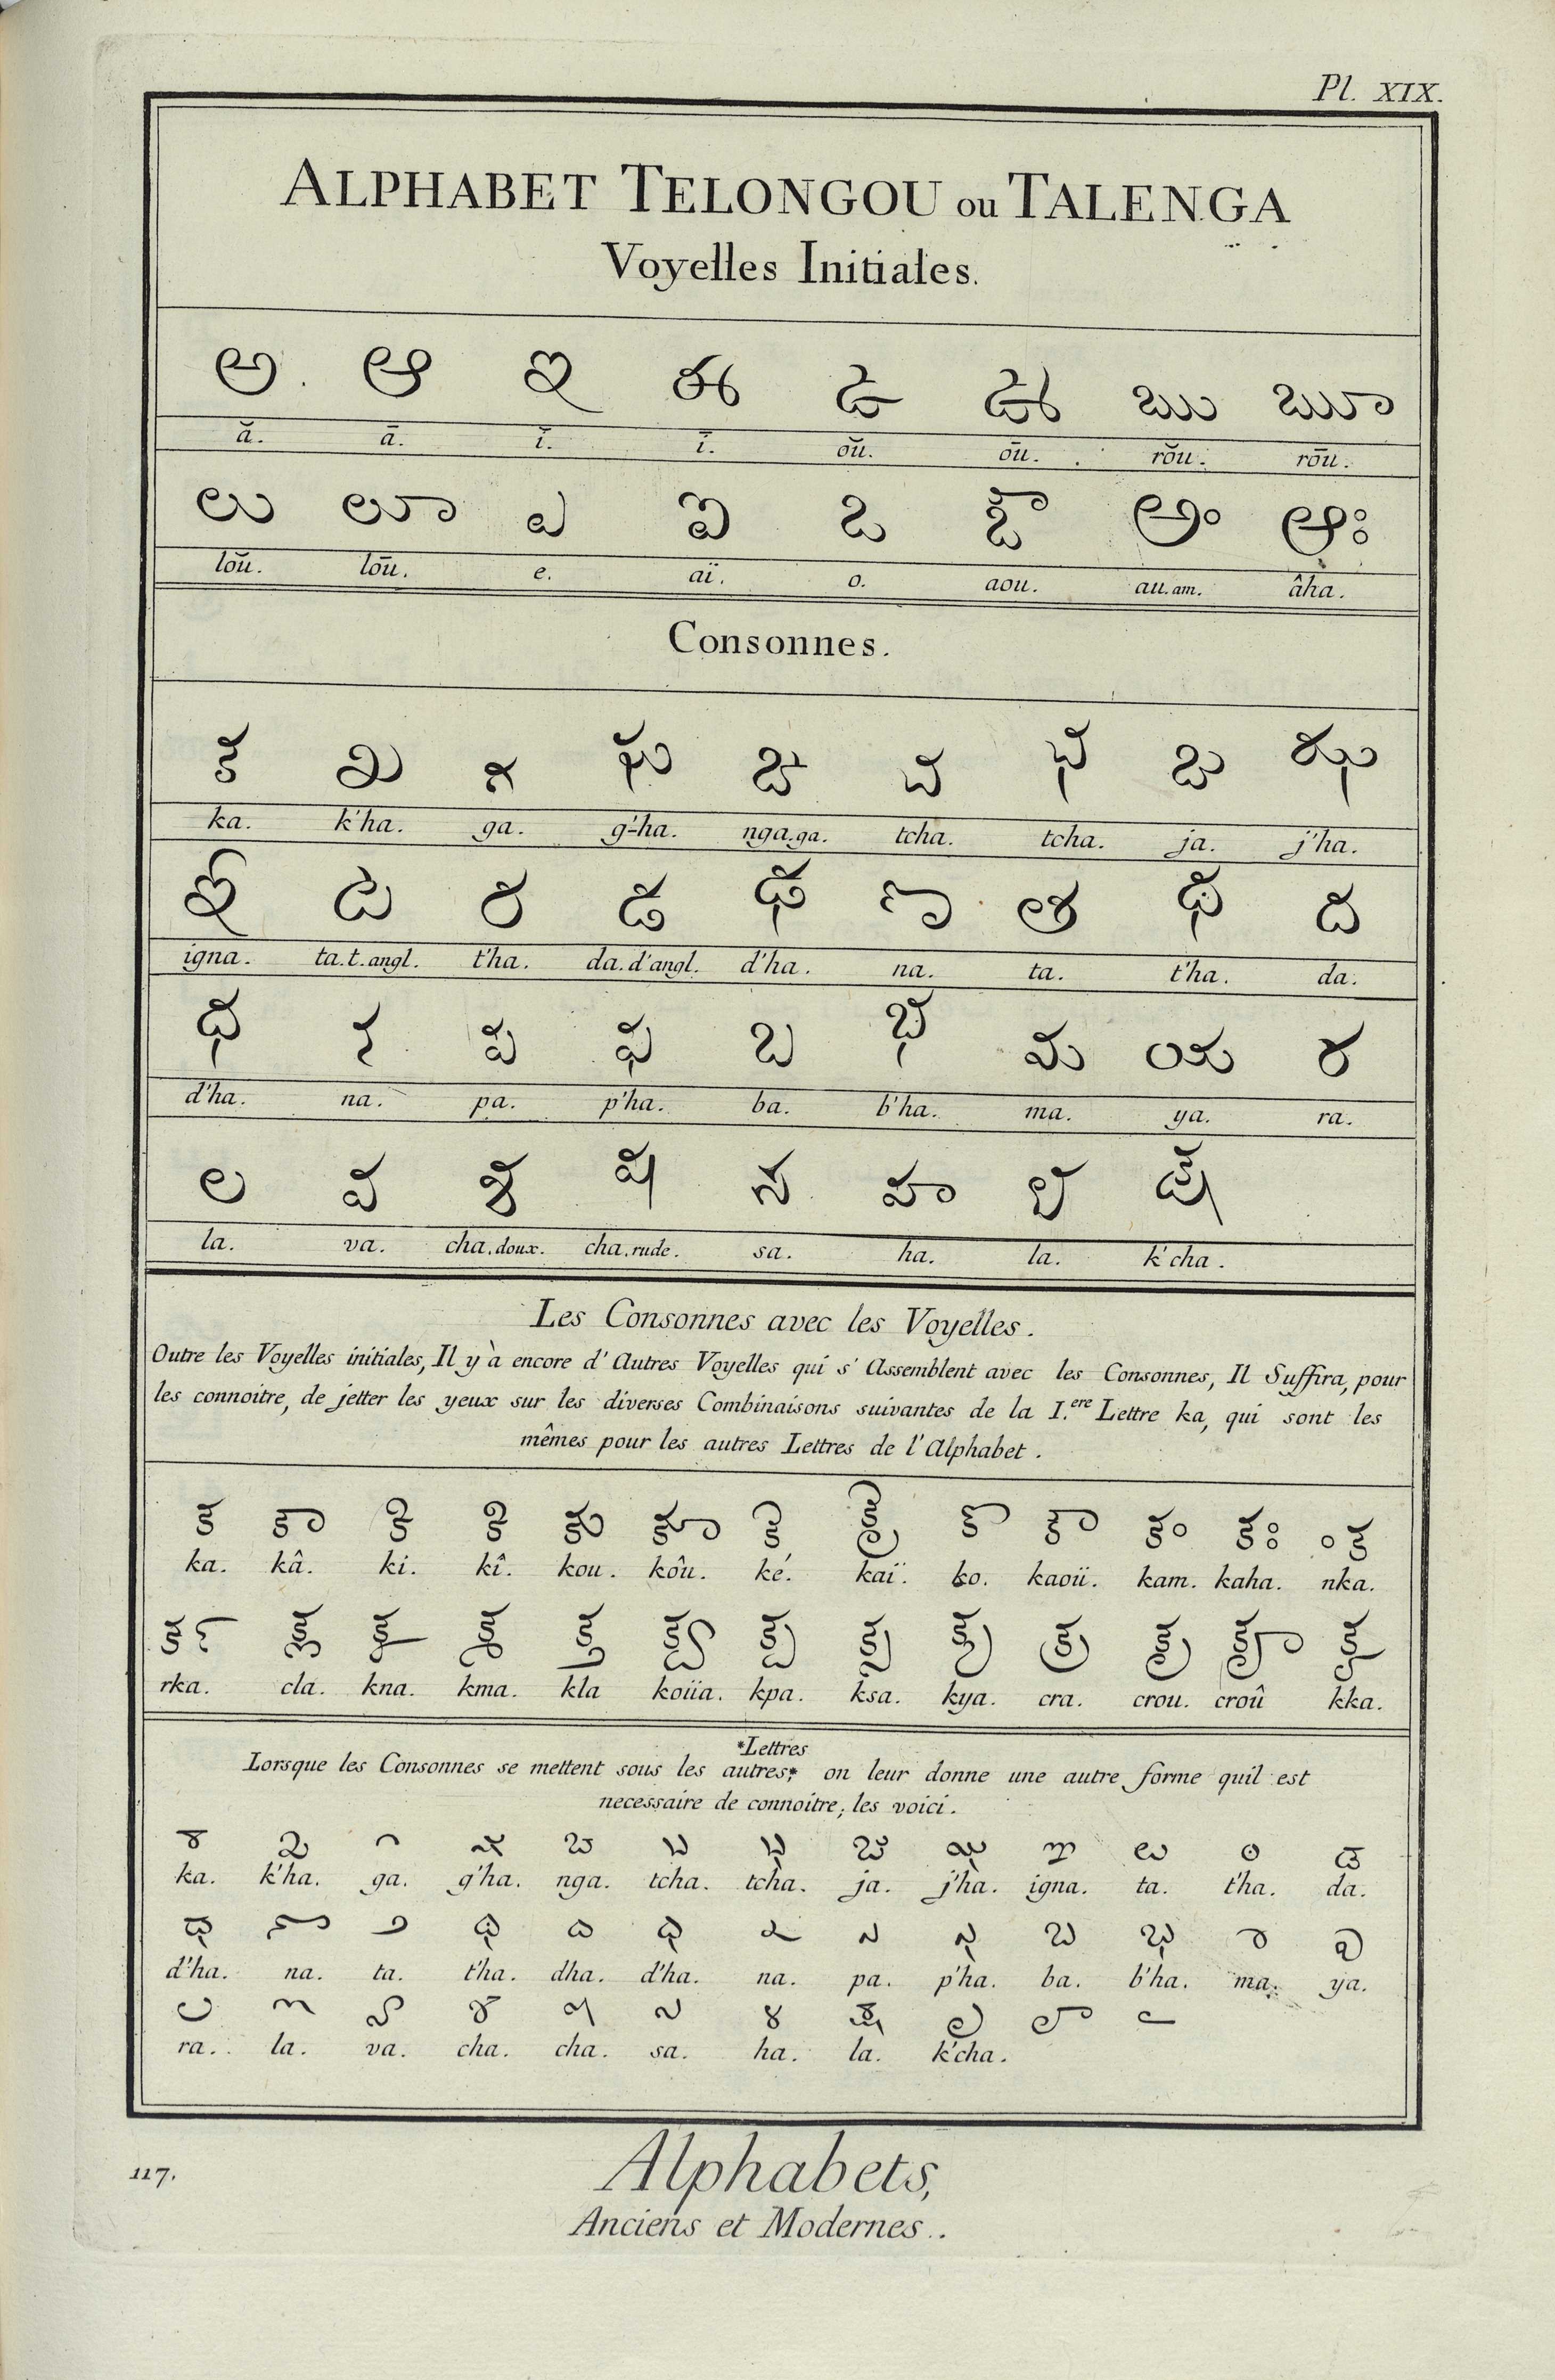 Pl. XIX.
ALPHABET TELONGOU ou TALENGA
Voyelles Initiales.
అ ఆ ఇ ఈ ఉ ఊ ఋ ౠ
ă. ā. ĭ. ī. oŭ. oū. roŭ. roū.
ఌ ౡ ఎ ఐ ఒ ఔ అం అః
loŭ. loū. e. aï. o. aou. au.am. âha.
Consonnes.
క ఖ గ ఘ ఙ చ ఛ జ ఝ
ka. k'ha. ga. g'ha. nga.ga. tcha. tcha. ja. j'ha.
ఞ ట ఠ డ ఢ ణ త థ ద
igna. ta.t.angl. t'ha. da.d'angl. d'ha. na. ta. t'ha. da.
ధ న ప ఫ బ భ మ య ర
d'ha. na. pa. p'ha. ba. b'ha. ma. ya. ra.
ల వ శ ష స హ ళ క్ష
la. va. cha.doux. cha.rude. sa. ha. la. k'cha.
Les Consonnes avec les Voyelles.
Outre les Voyelles initiales, Il y à encore d'Autres Voyelles qui s'Assemblent avec les Consonnes, Il Suffira, pour
les connoitre, de jetter les yeux sur les diverses Combinaisons suivantes de la I.ere Lettre ka, qui sont les
mêmes pour les autres Lettres de l'Alphabet.
క కా కి కీ కు కూ కె కై కొ కౌ కం కః ంక
ka. kâ. ki. kî. kou. kôu. ké. kaï. ko. kaoü. kam. kaha. nka.
rka. cla. kna. kma. kla koüa. kpa. ksa. kya. cra. crou. croû kka.
*Lettres
Lorsque les Consonnes se mettent sous les autres* on leur donne une autre forme quil est
necessaire de connoitre, les voici.
ka. k'ha. ga. g'ha. nga. tcha. tcha. ja. j'ha. igna. ta. t'ha. da.
d'ha. na. ta. t'ha. dha. d'ha. na. pa. p'ha. ba. b'ha. ma. ya.
ra. la. va. cha. cha. sa. ha. la. k'cha.
117.
Alphabets,
Anciens et Modernes..